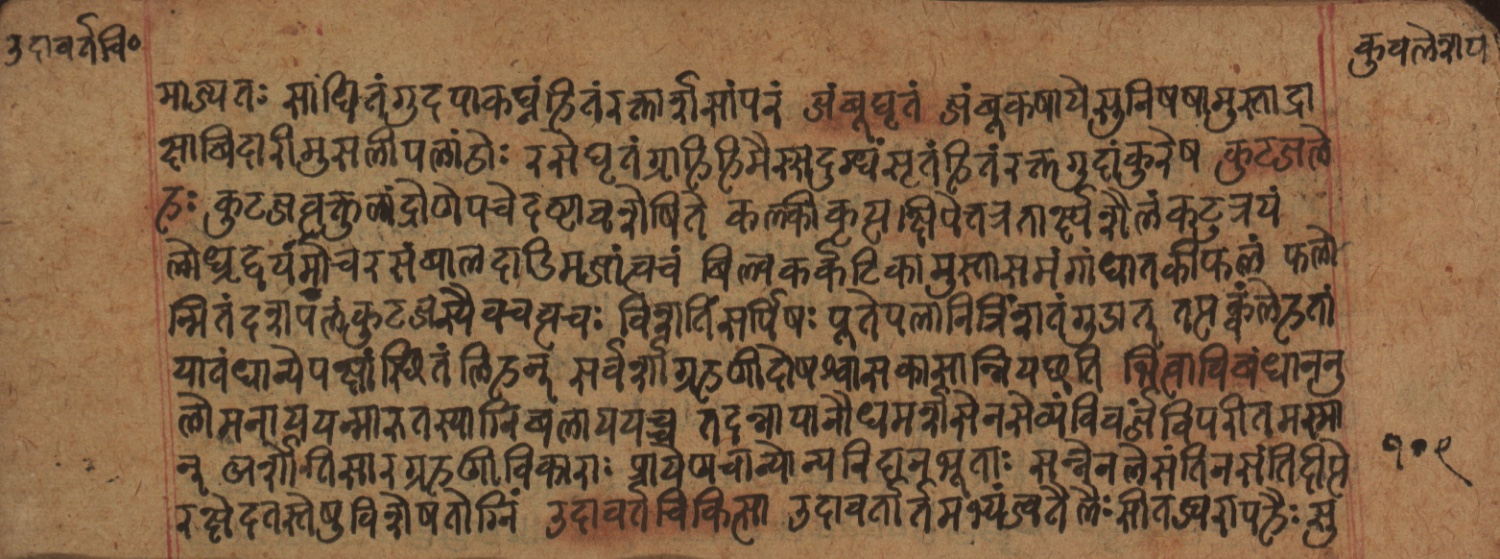 उदावर्तचि०
कुवलेशप
माज्यतः साधितं गुदपाकघ्नं हितं रक्तार्शसां परं जंबूघृतं जंबूकषाये सुनिषषामुस्ताद्रा
क्षाबिदारीमुसलीपलांडोः रसे घृतं ग्राहि हिमैस्सदुग्धं सृतं हितं रक्तगुदांकुरेष कुटजले
हः कुटजत्वक्तुलां द्रोणे पचेदष्टावशेषिते कल्कीकृत्य क्षिपेतत्र तार्क्ष्यशैलं कटुत्रयं
लोध्रद्वयं मोचरसं बालदाडिमजां त्वचं बिल्वकर्कटिकामुस्तासमंगा धातकीफलं फलो
न्मितं दशपलं कुटजस्यैव च त्वचः विंशतिं सर्पिषः पूते पलानि त्रिंशतं गुडात् तत्पक्वं लेहतां
यातं धान्ये पक्षं स्थितं लिहन् सर्वर्शोग्रहणीदोषश्वासकासान्नियच्छति भित्वा विबंधाननु
लोमनाय यन्मारुतस्याग्निबलाय यच्च तदन्नपानौषधमर्शसेन सेव्यं विवर्ज्यं विपरीतमस्मा
न् अर्शोतिसारग्रहणीविकाराः प्रायेण चान्योन्यनिदानभूताः सन्नेनले संति न संति दीप्ते
रक्षेदतस्तेषु विशेषतोग्निं उदावर्तचिकित्सा उदावर्तार्तमभ्यज्य तैलैः सीतज्वरापहैः सु
१०९